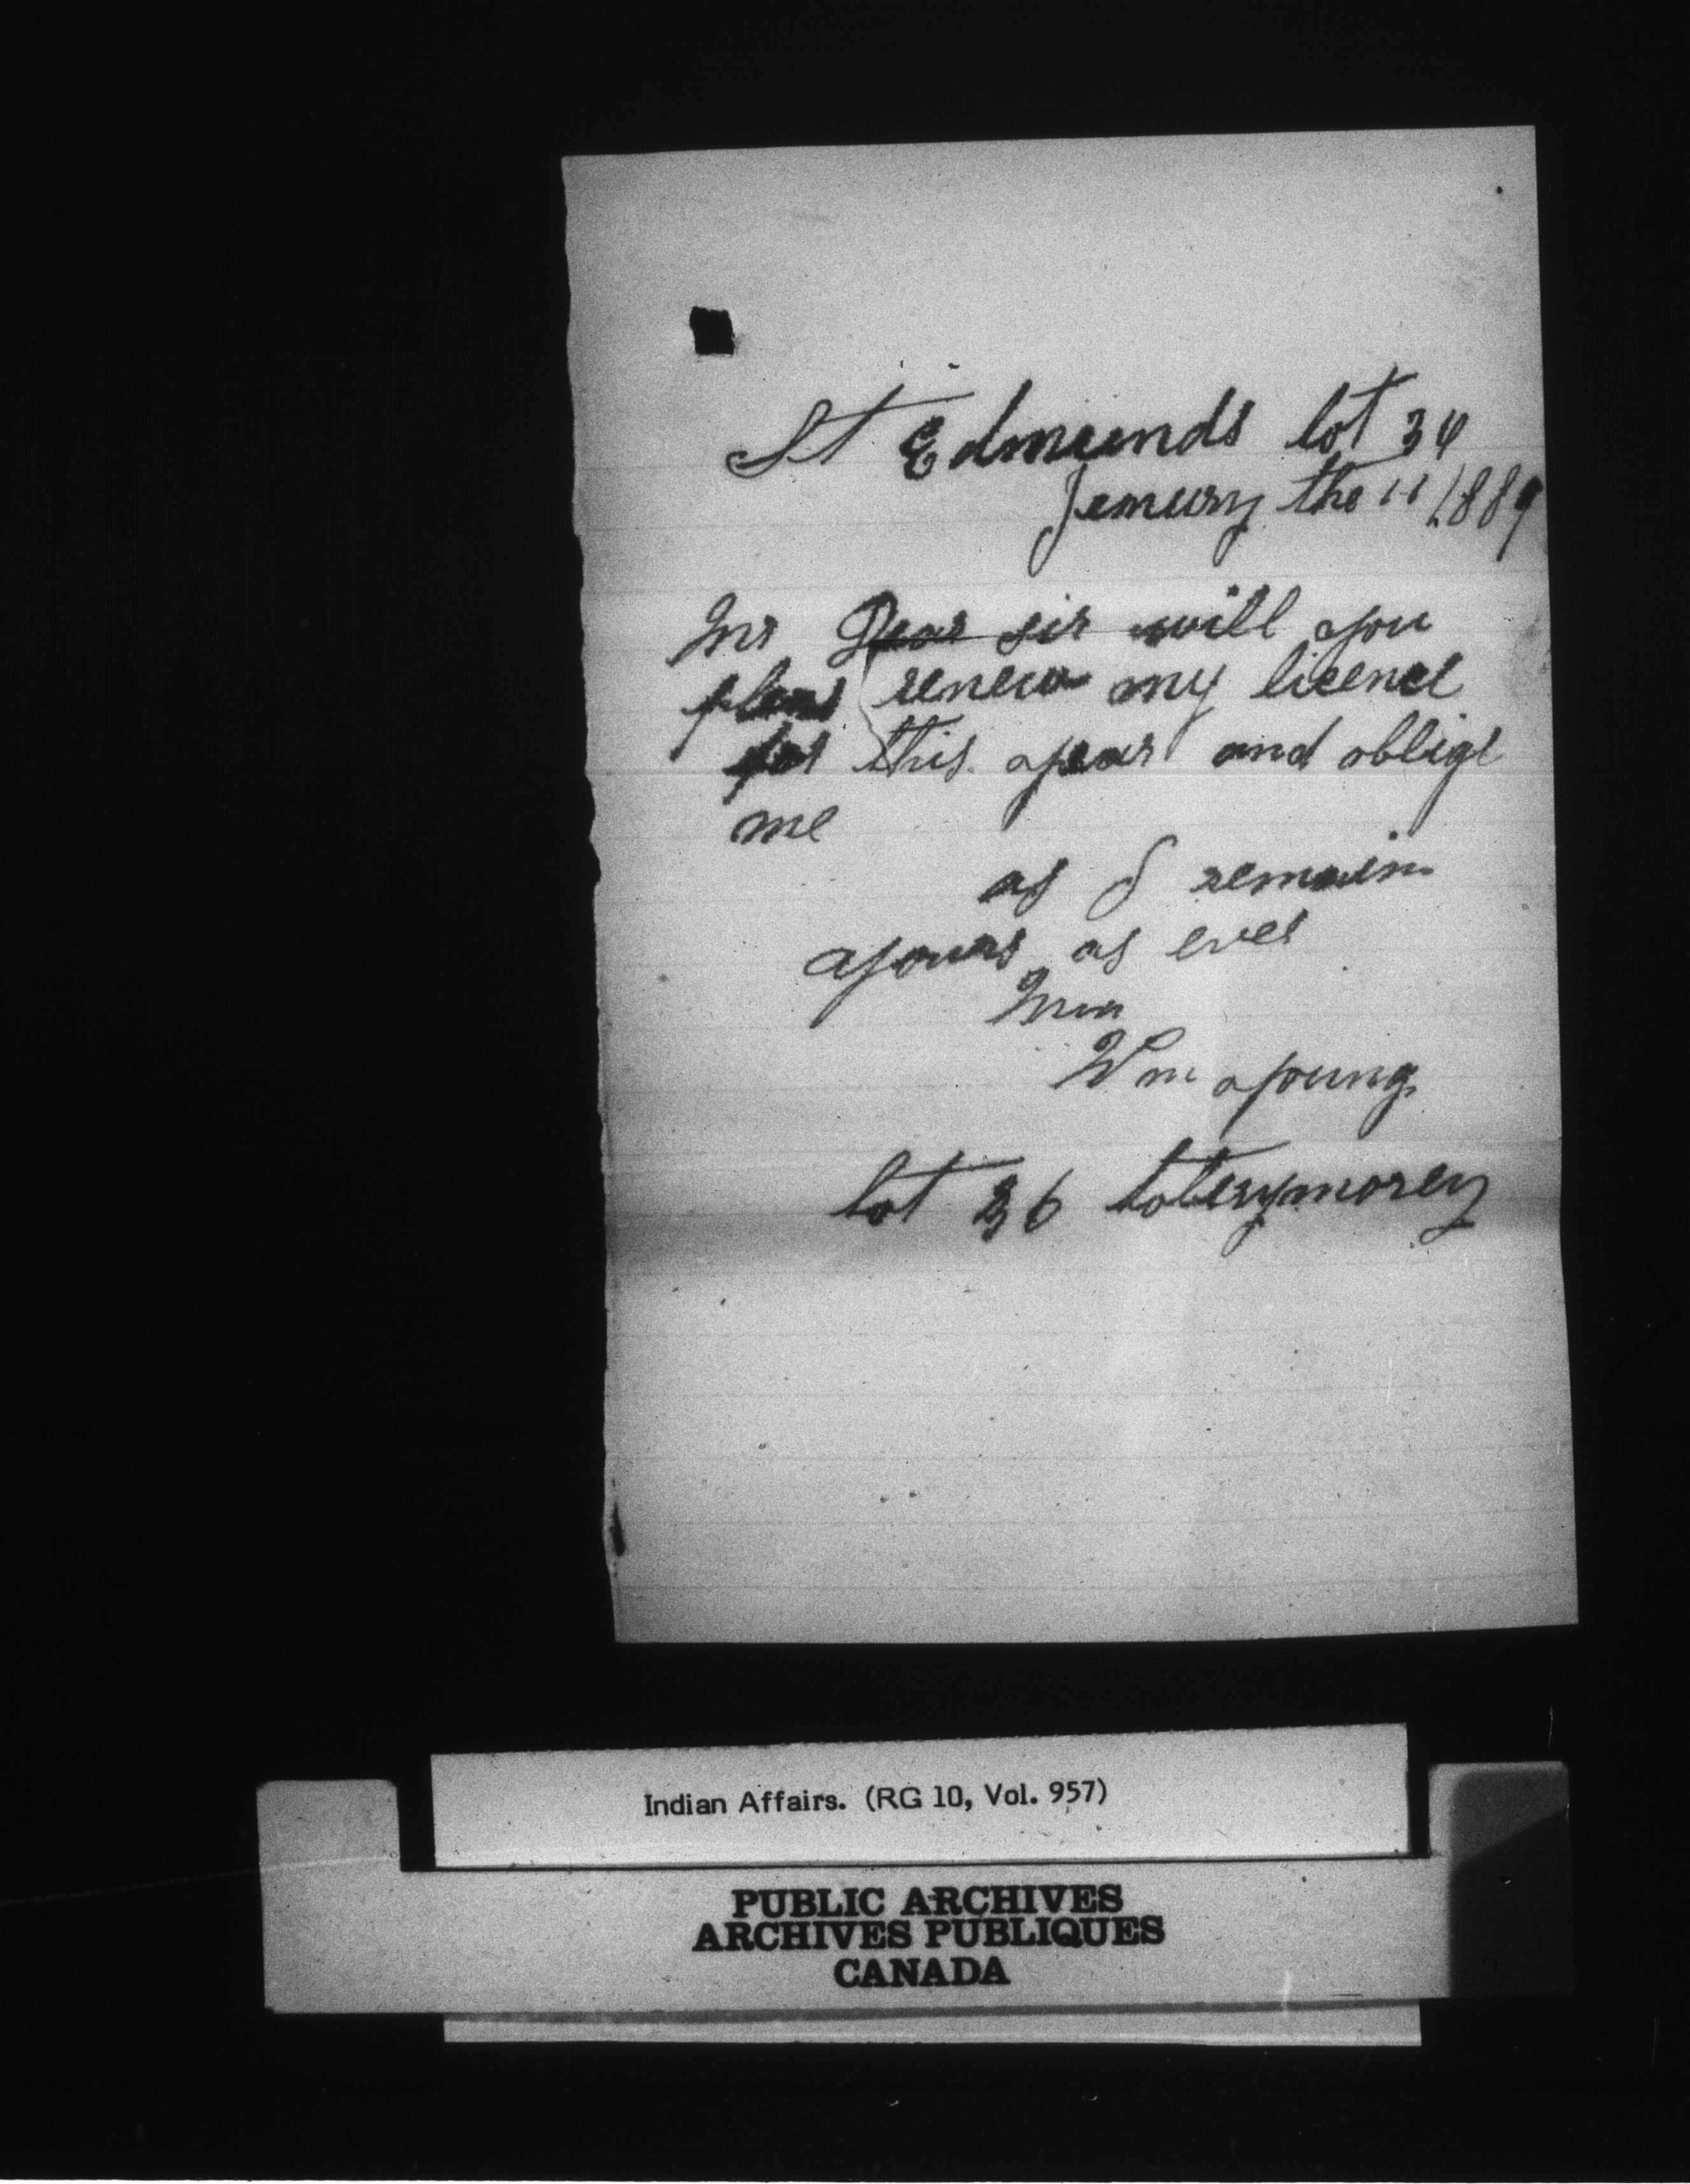 St Edmunds lot 34
Jemury the 11 1889
Mr Dear sir will you
pleas renew my licence
for this year and oblige
me
as I remain
yours as ever
Wm
Wm young
lot 36 toberymorey
Indian Affairs. (RG 10, Vol. 957)
PUBLIC ARCHIVES
ARCHIVES PUBLIQUES
CANADA